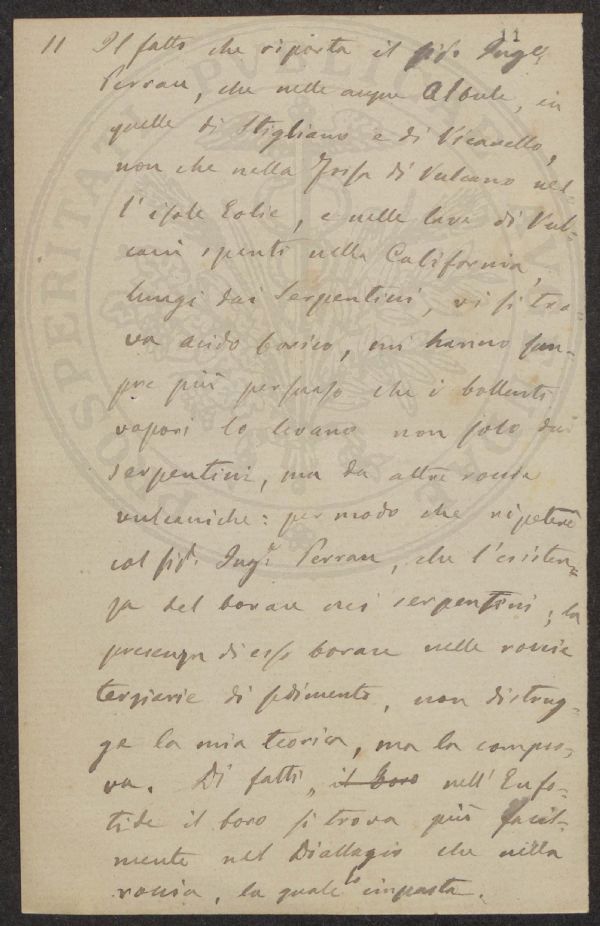 11
11 Il fatto che riporta il Sigr. Ingr.
Perrau, che nelle acque Albule, in
quelle di Stigliano e di Vicarello,
non che nella Fossa di Vulcano nel-
l'isole Eolie, e nelle lave di Vul-
cani spenti nella California,
lungi dai Serpentini, vi si tro-
va acido borico, mi hanno sem-
pre più persuaso che i bollenti
vapori lo levano non solo dai
serpentini, ma da altre roccie
vulcaniche: per modo che ripeterò
col Sigr. Ingr. Perrau, che l'esisten-
za del borace nei serpentini, la
presenza di esso borace nelle roccie
terziarie di sedimento, non distrug-
ge la mia teoria, ma la compro-
va. Di fatti, il boro nell'Eufo-
tide il boro si trova più facil-
mente nel Diallagio che nella
roccia, la quale lo impasta.
PROSPERITATI PUBLICAE